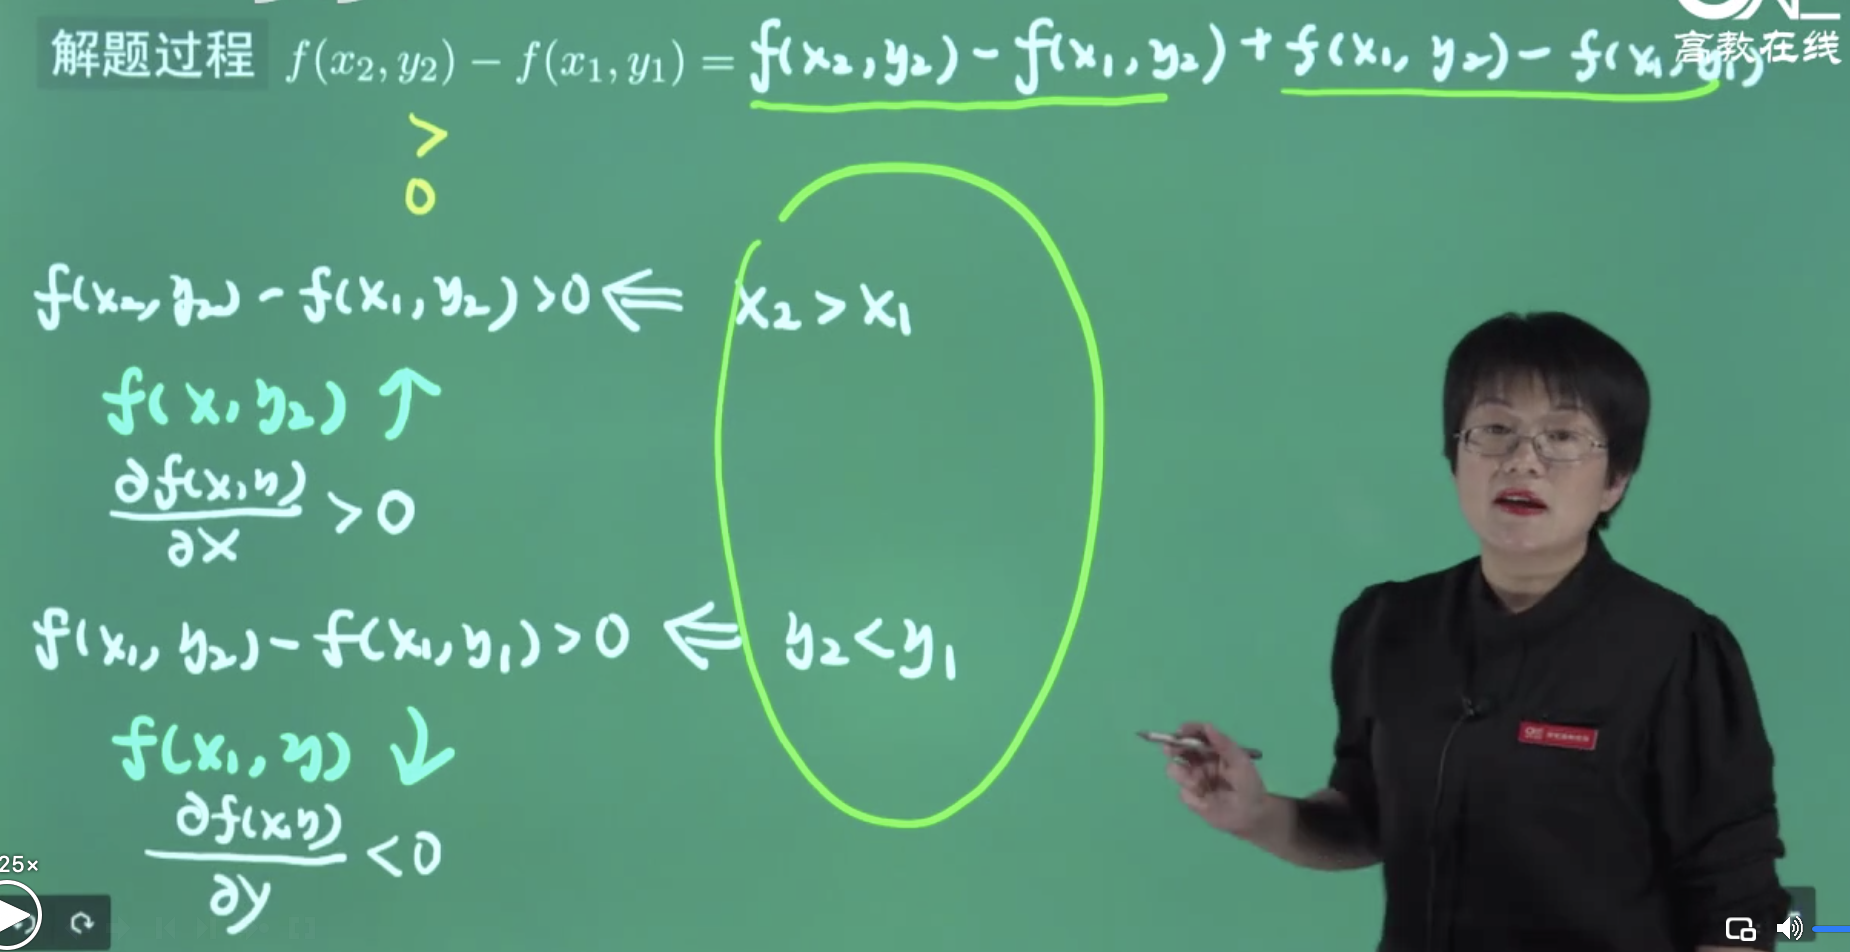 高教在线
解题过程 f(x₂, y₂) − f(x₁, y₁) = f(x₂, y₂) − f(x₁, y₂) + f(x₁, y₂) − f(x₁, y₁)
>
0
f(x₂, y₂) − f(x₁, y₂) > 0 ⇐ x₂ > x₁
f(x, y₂) ↑
∂f(x, y)/∂x > 0
f(x₁, y₂) − f(x₁, y₁) > 0 ⇐ y₂ < y₁
f(x₁, y) ↓
∂f(x, y)/∂y < 0
25×